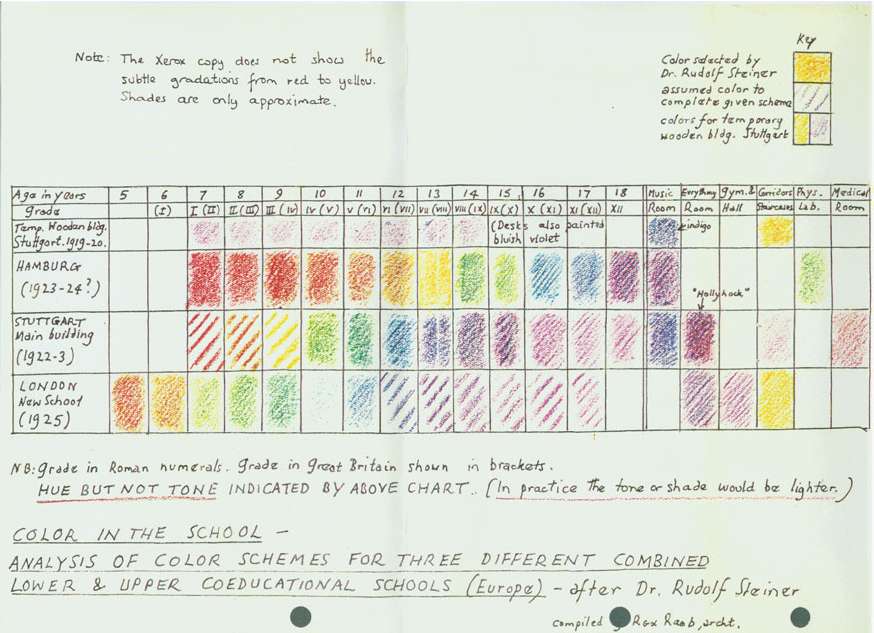 Key
Note: The Xerox copy does not show the
subtle gradations from red to yellow.
Shades are only approximate.
Color selected by
Dr. Rudolf Steiner
assumed color to
complete given schema
colors for temporary
wooden bldg. Stuttgart
Age in years 5 6 7 8 9 10 11 12 13 14 15 16 17 18 Music Eurythmy Gym. & Corridors Phys. Medical
Grade (I) I (II) II (III) III (IV) IV (V) V (VI) VI (VII) VII (VIII) VIII (IX) IX (X) X (XI) XI (XII) XII Room Room Hall Staircases Lab. Room
Temp. Wooden bldg.
Stuttgart. 1919-20.
(Desks also painted
bluish violet
indigo
HAMBURG
(1923-24?)
"Hollyhock"
STUTTGART
Main building
(1922-3)
LONDON
New School
(1925)
NB: grade in Roman numerals. Grade in Great Britain shown in brackets.
HUE BUT NOT TONE INDICATED BY ABOVE CHART.. (In practice the tone or shade would be lighter.)
COLOR IN THE SCHOOL –
ANALYSIS OF COLOR SCHEMES FOR THREE DIFFERENT COMBINED
LOWER & UPPER COEDUCATIONAL SCHOOLS (Europe) – after Dr. Rudolf Steiner
compiled Rex Raab, archt.